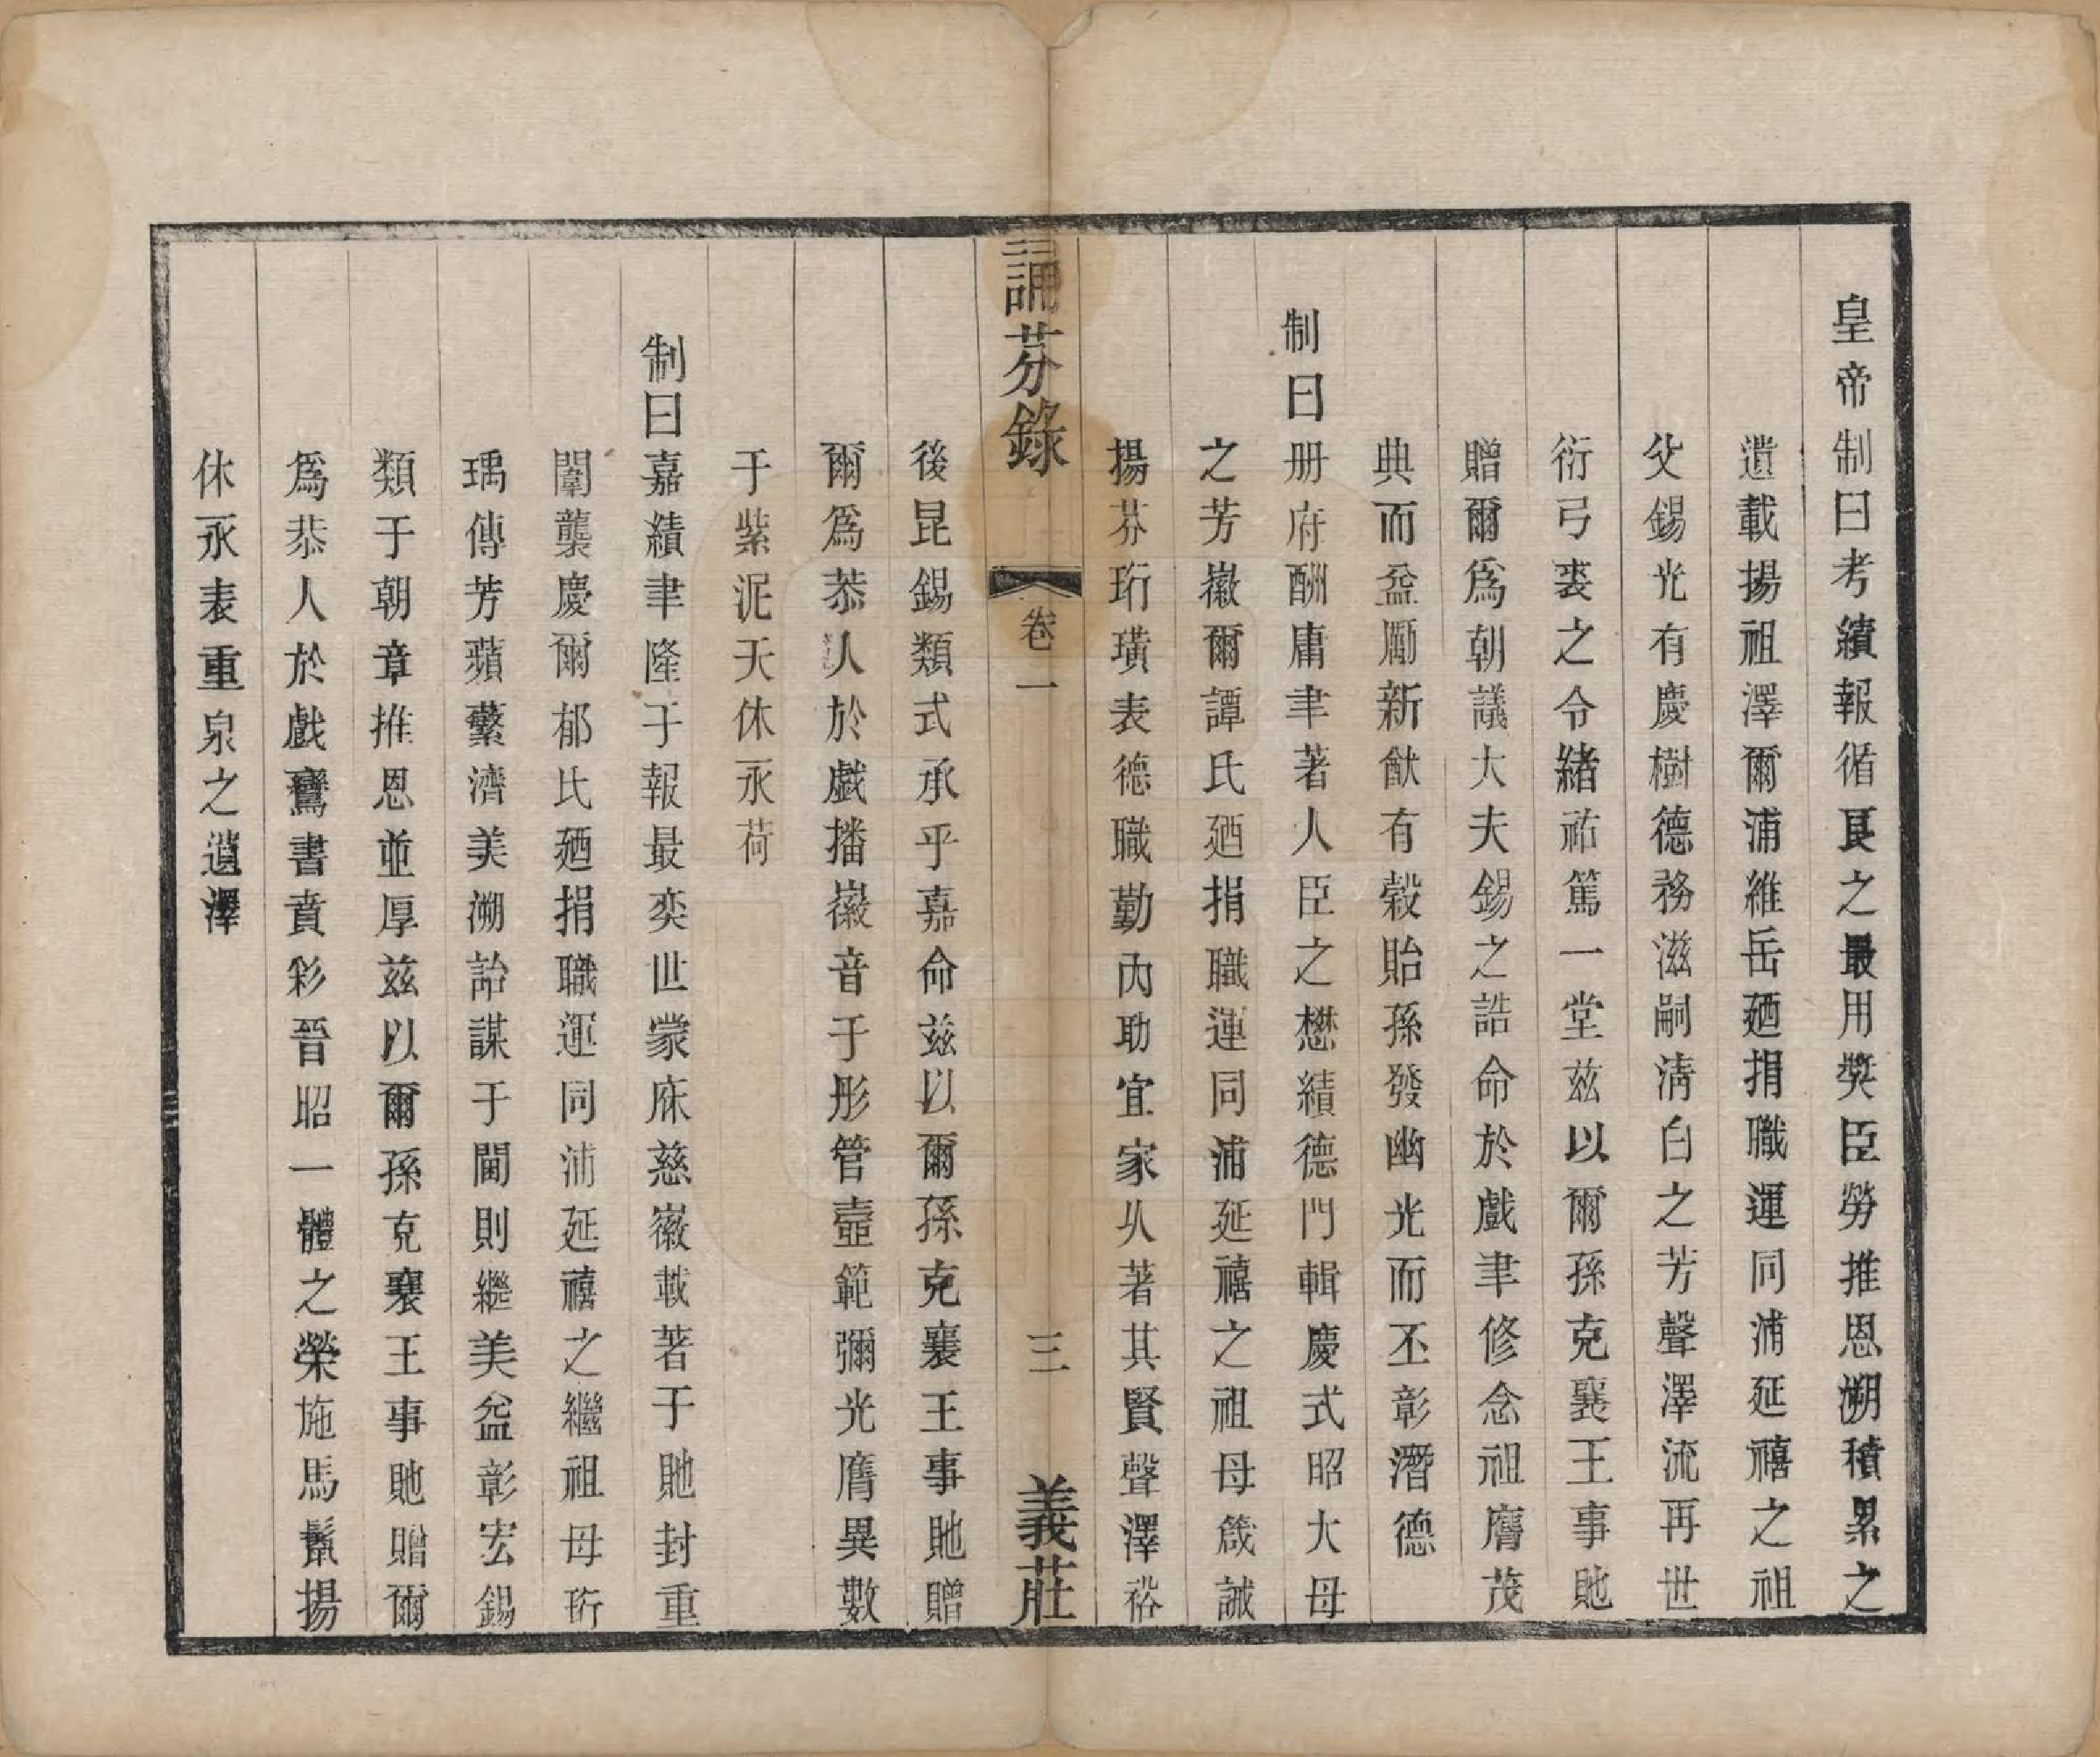 皇帝制曰考績報循良之最用奬臣勞推恩溯積累之
遺載揚祖澤爾浦維岳廼捐職運同浦延禧之祖
父錫光有慶樹德務滋嗣淸白之芳聲澤流再世
衍弓裘之令緖祐篤一堂兹以爾孫克襄王事貤
贈爾爲朝議大夫錫之誥命於戲聿修念祖膺茂
典而益勵新猷有穀貽孫發幽光而丕彰潛德
制曰册府酬庸聿著人臣之懋績德門輯慶式昭大母
之芳徽爾譚氏廼捐職運同浦延禧之祖母箴誡
揚芬珩璜表德職勤內助宜家久著其賢聲澤裕
誦芬錄
卷一
三
義莊
後昆錫類式承乎嘉命兹以爾孫克襄王事貤贈
爾爲恭人於戲播徽音于彤管壼範彌光膺異數
于紫泥天休永荷
制曰嘉績聿隆于報最奕世蒙庥慈徽載著于貤封重
闈襲慶爾郁氏廼捐職運同浦延禧之繼祖母珩
瑀傳芳蘋蘩濟美溯詒謀于閫則繼美益彰宏錫
類于朝章推恩並厚兹以爾孫克襄王事貤贈爾
爲恭人於戲鸞書賁彩晉昭一體之榮施馬鬣揚
休永表重泉之遺澤